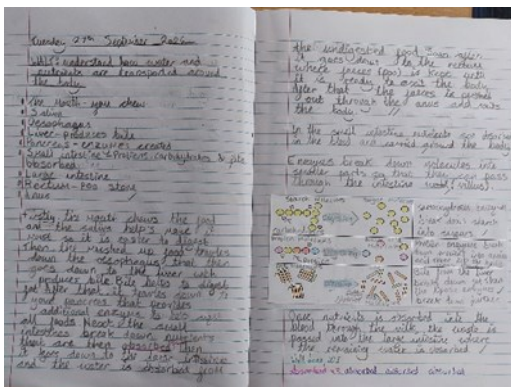 Tuesday 27th September
WALT: understand how water and
nutrients are transported around
the body
The Mouth - you chew
Saliva
Oesophagus
Liver - produces bile
Pancreas - enzymes created
Small intestine - Proteins, carbohydrates & fats
absorbed
Large intestine
Rectum - Poo store
Anus
Firstly the mouth chews the food
and the saliva helps make it
moist so it is easier to digest
Then the mushed up food travels
down the oesophagus, that then
goes down to the liver
produce bile. Bile helps to digest
after that it
your pancreas that provides
additional enzymes to
all foods. Next, the small
intestines break down nutrients
that are then absorbed. Then
it goes down to the large intestine
and the water is absorbed from
the undigested food. Then after
it goes down to the rectum
where faeces (poo) is kept until
it is ready to exit the body.
After that the faeces is pushed
out through the anus and exits
the body.
In the small intestine nutrients are absorbed
in the blood and carried around the body.
Enzymes break down molecules into
smaller parts so that they can pass
through the intestine
carbohydrase enzymes
break down starch
into sugars
Protein
Bile from the liver
breaks down
break down further
Once nutrients is absorbed into the
blood through the villi, the waste is
passed into the large intestine where
the remaining water is absorbed
absorbed absorbed absorbed